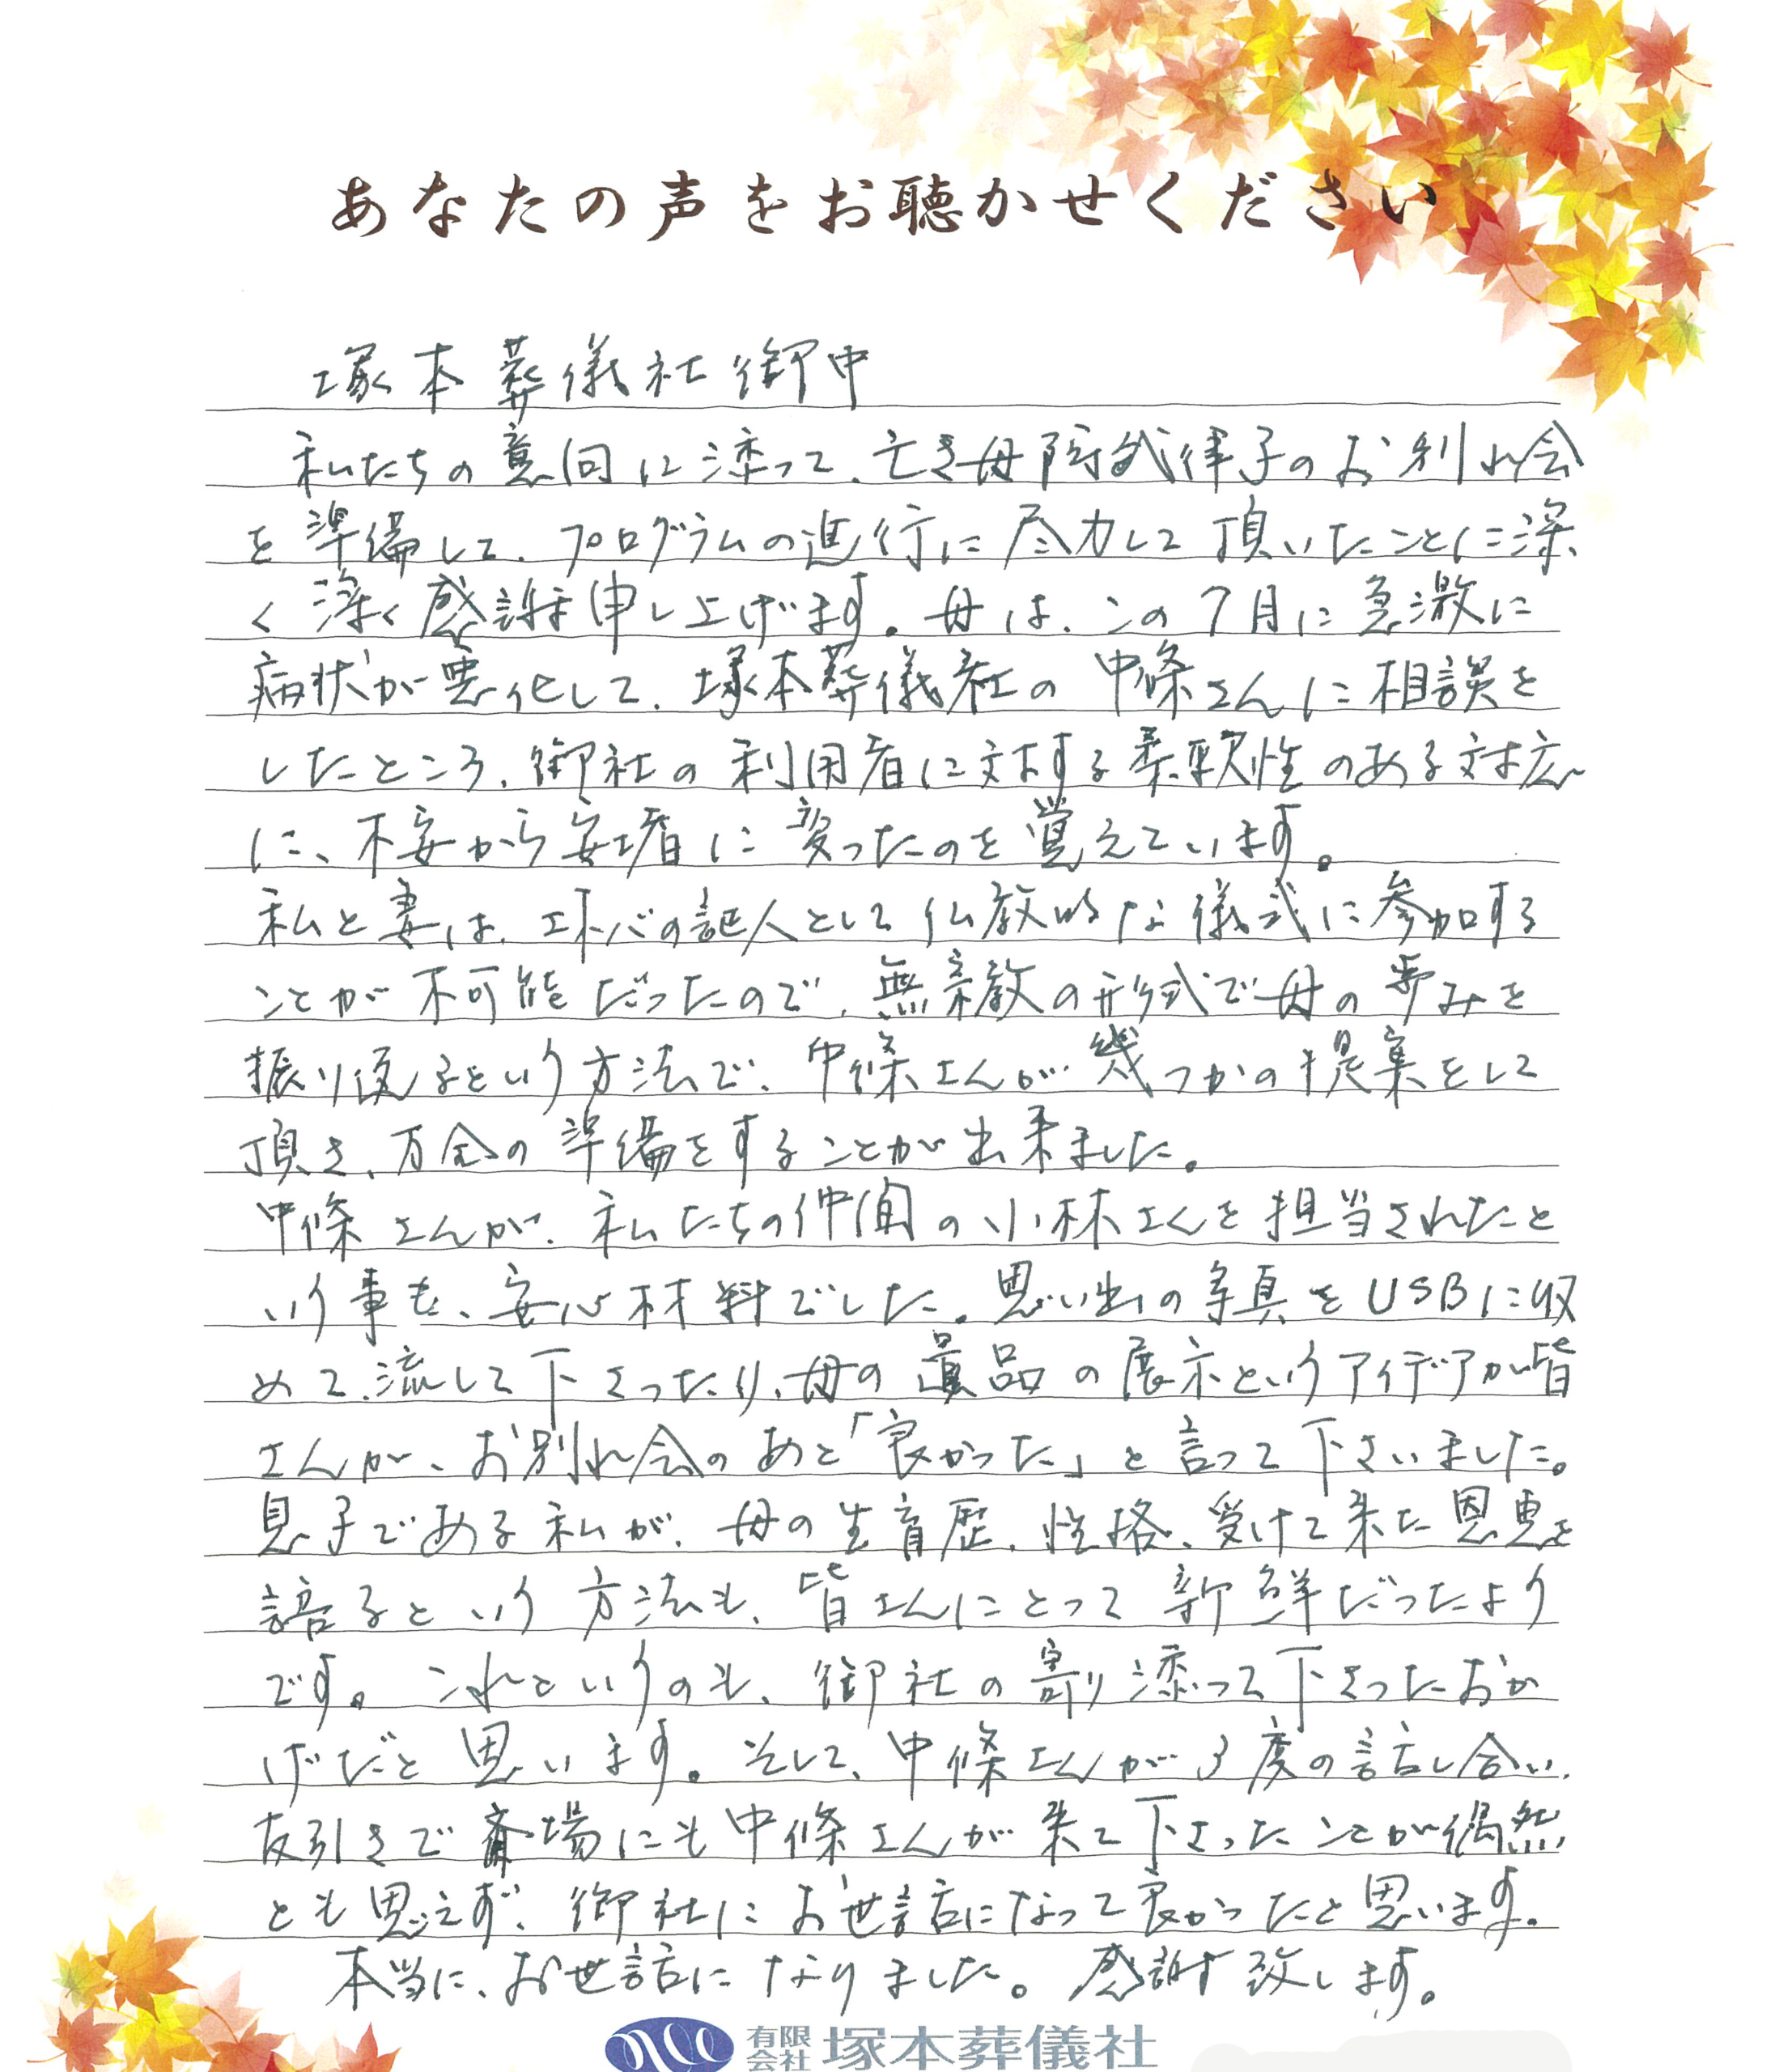 あなたの声をお聴かせください
塚本葬儀社御中
私たちの意向に添って、亡き母 律子のお別れ会
を準備して、プログラムの進行に尽力して頂いたことに深
く深く感謝申し上げます。母は、この7月に急激に
病状が悪化して、塚本葬儀社の中條さんに相談を
したところ、御社の利用者に対する柔軟性のある対応
に、不安から安堵に変ったのを覚えています。
私と妻は、エホバの証人として仏教的な儀式に参加する
ことが不可能だったので、無宗教の形式で母の歩みを
振り返るという方法で、中條さんが幾つかの提案をして
頂き、万全の準備をすることが出来ました。
中條さんが、私たちの仲間の小林さんを担当されたと
いう事も、安心材料でした。思い出の写真をUSBに収
めて、流して下さったり、母の遺品の展示というアイデアが皆
さんが、お別れ会のあと「良かった」と言って下さいました。
息子である私が、母の生育歴、性格、受けて来た恩恵を
語るという方法も、皆さんにとって新鮮だったよう
です。これというのも、御社の寄り添って下さったおか
げだと思います。そして、中條さんが3度の話し合い、
友引きで斎場にも中條さんが来て下さったことが偶然
とも思えず、御社にお世話になって良かったと思います。
本当に、お世話になりました。感謝致します。
有限会社 塚本葬儀社